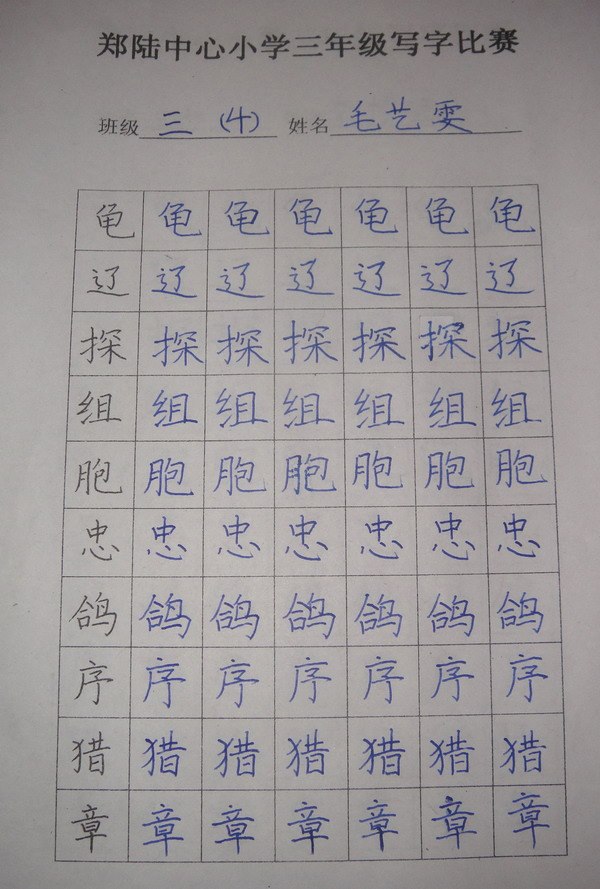 郑陆中心小学三年级写字比赛
班级 三 (4) 姓名 毛艺雯
龟 龟 龟 龟 龟 龟 龟
辽 辽 辽 辽 辽 辽 辽
探 探 探 探 探 探 探
组 组 组 组 组 组 组
胞 胞 胞 胞 胞 胞 胞
忠 忠 忠 忠 忠 忠 忠
鸽 鸽 鸽 鸽 鸽 鸽 鸽
序 序 序 序 序 序 序
猎 猎 猎 猎 猎 猎 猎
章 章 章 章 章 章 章